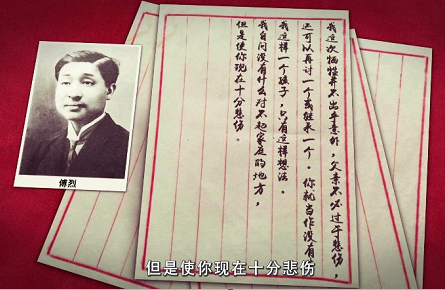 傅烈
我这次牺牲并不出乎意外，父亲不必过于悲伤，
还可以再讨一个或继承一个。你就当作没有
我这样一个孩子，只有这样想法。
我自问没有什么对不起家庭的地方，
但是使你现在十分悲伤。
但是使你现在十分悲伤